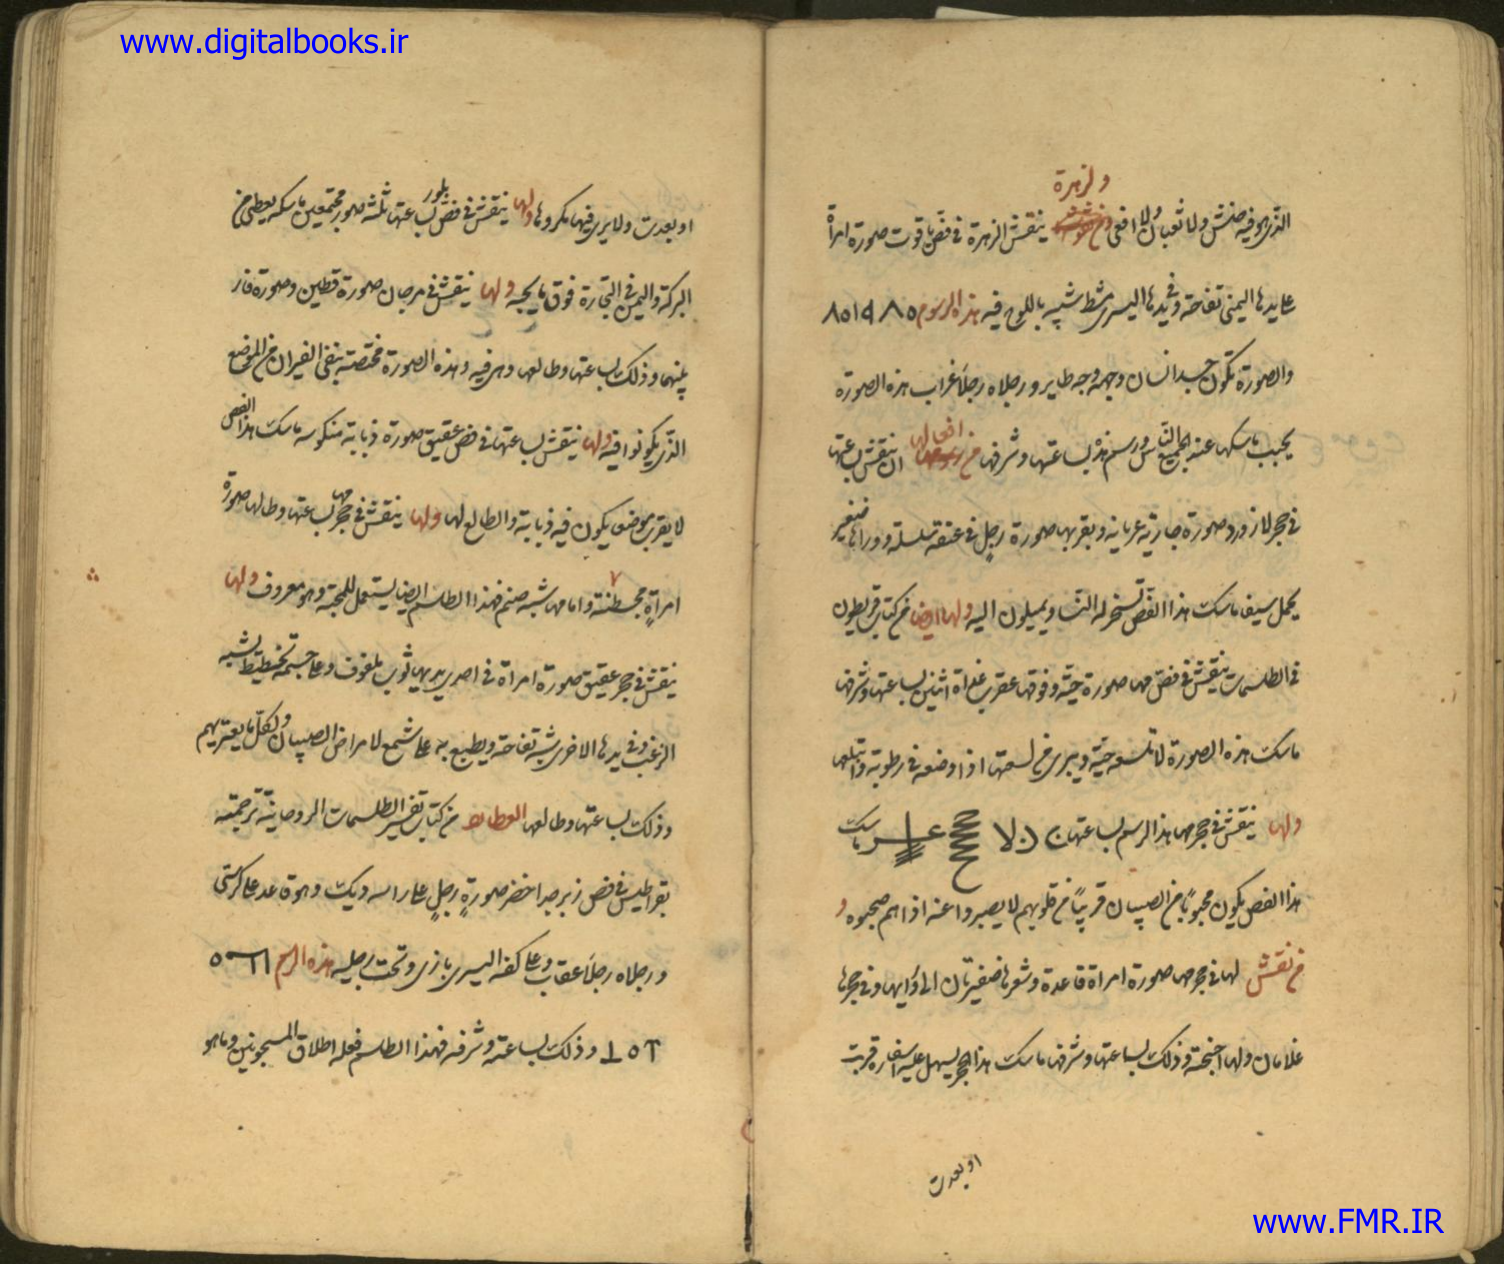 www.digitalbooks.ir
ولزهرة
الذي هو فيه حنش ولا ثعبان ولا افعى ينقش الزهرة في فص ياقوت صورة امرأة
على يدها اليمنى تفاحة وفي يدها اليسرى مشط شبيه باللوح فيه هذه الرسوم ٨٥١٩٨٥
والصورة تكون جسد انسان وجهه وجه طاير ورجلاه رجلا غراب هذه الصورة
يحبب ماسكها عند جميع الناس ورسم هذه بساعتها وشرفها من افعالها ان ينقش بساعتها
في حجر لازورد صورة جارية عريانة وبقربها صورة رجل في عنقه سلسلة وورائها صغير
يحمل سيفا ماسك هذا الفص تسخر له النسا ويميلون اليه ولها ايضا من كتاب قريطون
في الطلسمات ينقش في فص مها صورة حية وفوقها عقرب غداة اثنين بساعتها وشرفها
ماسك هذه الصورة لا تلسعه حية ويبرى من لسعتها اذا وضعه في رطوبة وابتلعها
ولها ينقش في حجر مها هذا الرسم بساعتها ماسك
هذا الفص يكون محبوبا من الصبيان قريبا من قلوبهم لا يصبروا عنه اذا هم صحبوه و
من نقش لها في حجر مها صورة امراة قاعدة وشعرها ضفيرتان الى ورايها وفي حجرها
غلامان ولها اجنحة وذلك بساعتها وشرفها ماسك هذا الحجر يسهل عليه اسفاره قربت
او بعدت
او بعدت ولا يرى فيها مكروها ولها ينقش في فص بلور بساعتها ثلثة صور مجتمعين ماسكه يعطى من
البركة واليمن في التجارة فوق ما يحبه ولها ينقش في مرجان صورة قطين وصورة فار
بينهما وذلك بساعتها وطالعها وهي فيه وهذه الصورة مختصة بنفى الفيران من الموضع
الذي يكونوا فيه ولها ينقش بساعتها في فص عقيق صورة ذبابة منكوسه ماسك هذا الفص
لا يقرب موضع يكون فيه ذبابة والطالع لها ولها ينقش في حجر مها بساعتها وطالها صورة
امراة وامامها شبه صنم فهذا الطلسم ايضا يستعمل للمحبة وهو معروف ولها
ينقش في حجر عقيق صورة امراة في احدى يديها ثوب ملفوف وعلى جسمه تخطيط يشبه
الزغب وفي يدها الاخرى شبه تفاحة ويطبع به على شمع لامراض الصبيان ولكل ما يعتريهم
وذلك بساعتها وطالعها العطارد من كتاب تفسير الطلسمات الروحانية ترجمته
بقراطيس في فص زبرجد اخضر صورة رجل على راسه ديك وهو قاعد على كرسي
ورجلاه رجلا عقاب وعلى كفه اليسرى بازى وتحت رجليه هذه الرسم
وذلك بساعته وشرفه فهذا الطلسم فعله اطلاق المسجونين وما هو
www.FMR.IR